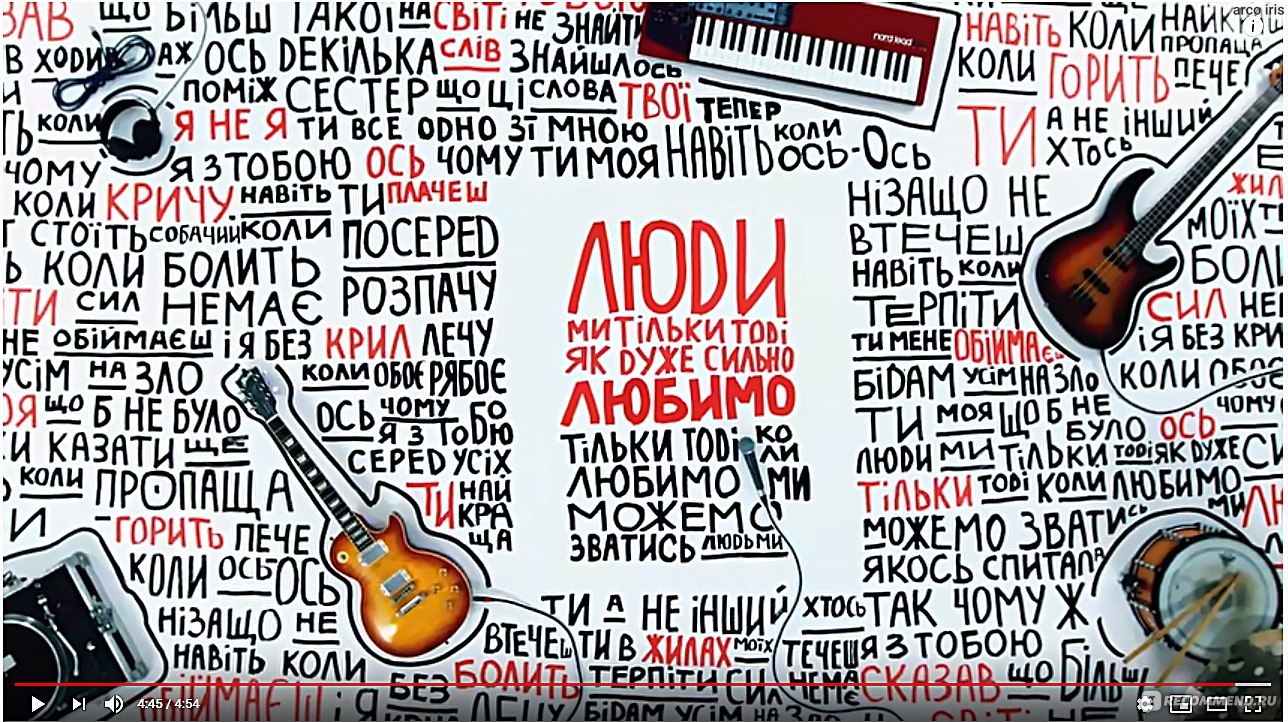 arco iris
ЗАВ ЩО БІЛЬШ ТАКОЇ НА СВІТІ НЕ ЗНАЙТИ
В ХОДИ АХ ОСЬ ДЕКІЛЬКА СЛІВ ЗНАЙШЛОСЬ
nord lead
НАВІТЬ КОЛИ НАЙКРА
ПРОПАЩА
КОЛИ ГОРИТЬ ПЕЧЕ
ПОМІЖ СЕСТЕР ЩО ЦІ СЛОВА ТВОЇ ТЕПЕР
ТЬ КОЛИ Я НЕ Я ТИ ВСЕ ОДНО ЗІ МНОЮ НАВІТЬ КОЛИ ОСЬ-ОСЬ
ТИ А НЕ ІНШИЙ ХТОСЬ
ЧОМУ Я З ТОБОЮ ОСЬ ЧОМУ ТИ МОЯ
КОЛИ КРИЧУ НАВІТЬ ТИ ПЛАЧЕШ
Т СТОЇТЬ СОБАЧИЙ КОЛИ ПОСЕРЕД
Ь КОЛИ БОЛИТЬ РОЗПАЧУ
ТИ СИЛ НЕМАЄ
НЕ ОБІЙМАЄШ І Я БЕЗ КРИЛ ЛЕЧУ
УСІМ НА ЗЛО КОЛИ ОБОЄ РЯБОЄ
ОЯ ЩО Б НЕ БУЛО ОСЬ ЧОМУ БО
Я З ТОБОЮ
И КАЗАТИ ЩЕ СЕРЕД УСІХ
КОЛИ ПРОПАЩА ТИ НАЙ
КРА
ЩА
И ГОРИТЬ ПЕЧЕ
КОЛИ ОСЬ-ОСЬ
НІЗАЩО НЕ
НАВІТЬ КОЛИ
ІЙМАЄШ І Я БЕЗ
ЛЮДИ
МИ ТІЛЬКИ ТОДІ
ЯК ДУЖЕ СИЛЬНО
ЛЮБИМО
ТІЛЬКИ ТОДІ КО
ЛИ
ЛЮБИМО МИ
МОЖЕМО
ЗВАТИСЬ ЛЮДЬМИ
ТИ А НЕ ІНШИЙ ХТОСЬ
ВТЕЧЕШ ТИ В ЖИЛАХ МОЇХ ТЕЧЕШ
БОЛИТЬ ТЕРПІТИ СИЛ НЕМА
БІДАМ УСІМ НА ЗЛО
НІЗАЩО НЕ ЖИЛ
ВТЕЧЕШ МОЇХ Т
НАВІТЬ КОЛИ БОЛИ
ТЕРПІТИ СИЛ НЕ
ТИ МЕНЕ ОБІЙМАЄШ І Я БЕЗ КРИ
БІДАМ УСІМ НА ЗЛО КОЛИ ОБОЄ
ТИ МОЯ ЩО Б НЕ БУЛО ОСЬ ЧОМУ
ЛЮДИ МИ ТІЛЬКИ ТОДІ ЯК ДУЖЕ СИ
ТІЛЬКИ ТОДІ КОЛИ ЛЮБИМО МИ
МОЖЕМО ЗВАТИСЬ ЛЮ
ЯКОСЬ СПИТАЛА
ТАК ЧОМУ Ж
Я З ТОБОЮ
СКАЗАВ ЩО БІЛЬШ
4:45 / 4:54
RECOMMEND.RU